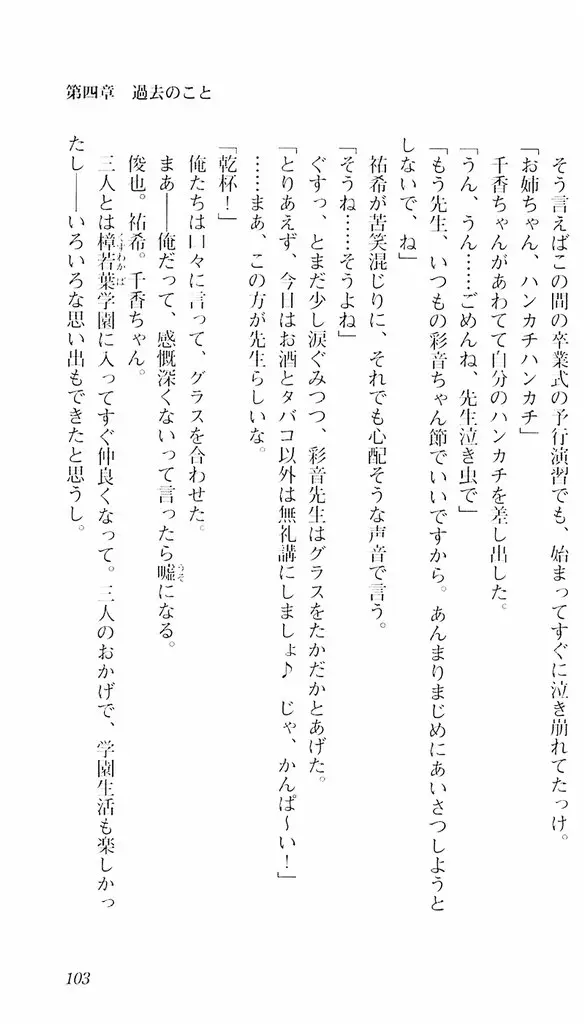 第四章　過去のこと
そう言えばこの間の卒業式の予行演習でも、始まってすぐに泣き崩れてたっけ。
「お姉ちゃん、ハンカチハンカチ」
千香ちゃんがあわてて自分のハンカチを差し出した。
「うん、うん……ごめんね、先生泣き虫で」
「もう先生、いつもの彩音ちゃん節でいいですから。あんまりまじめにあいさつしようと
しないで、ね」
祐希が苦笑混じりに、それでも心配そうな声音で言う。
「そうね……そうよね」
ぐすっ、とまだ少し涙ぐみつつ、彩音先生はグラスをたかだかとあげた。
「とりあえず、今日はお酒とタバコ以外は無礼講にしましょ♪　じゃ、かんぱ〜い！」
……まあ、この方が先生らしいな。
「乾杯！」
俺たちは口々に言って、グラスを合わせた。
まあ――俺だって、感慨深くないって言ったら嘘になる。
うそ
俊也。祐希。千香ちゃん。
三人とは樟若葉学園に入ってすぐ仲良くなって。三人のおかげで、学園生活も楽しかっ
くすわかば
たし――いろいろな思い出もできたと思うし。
103